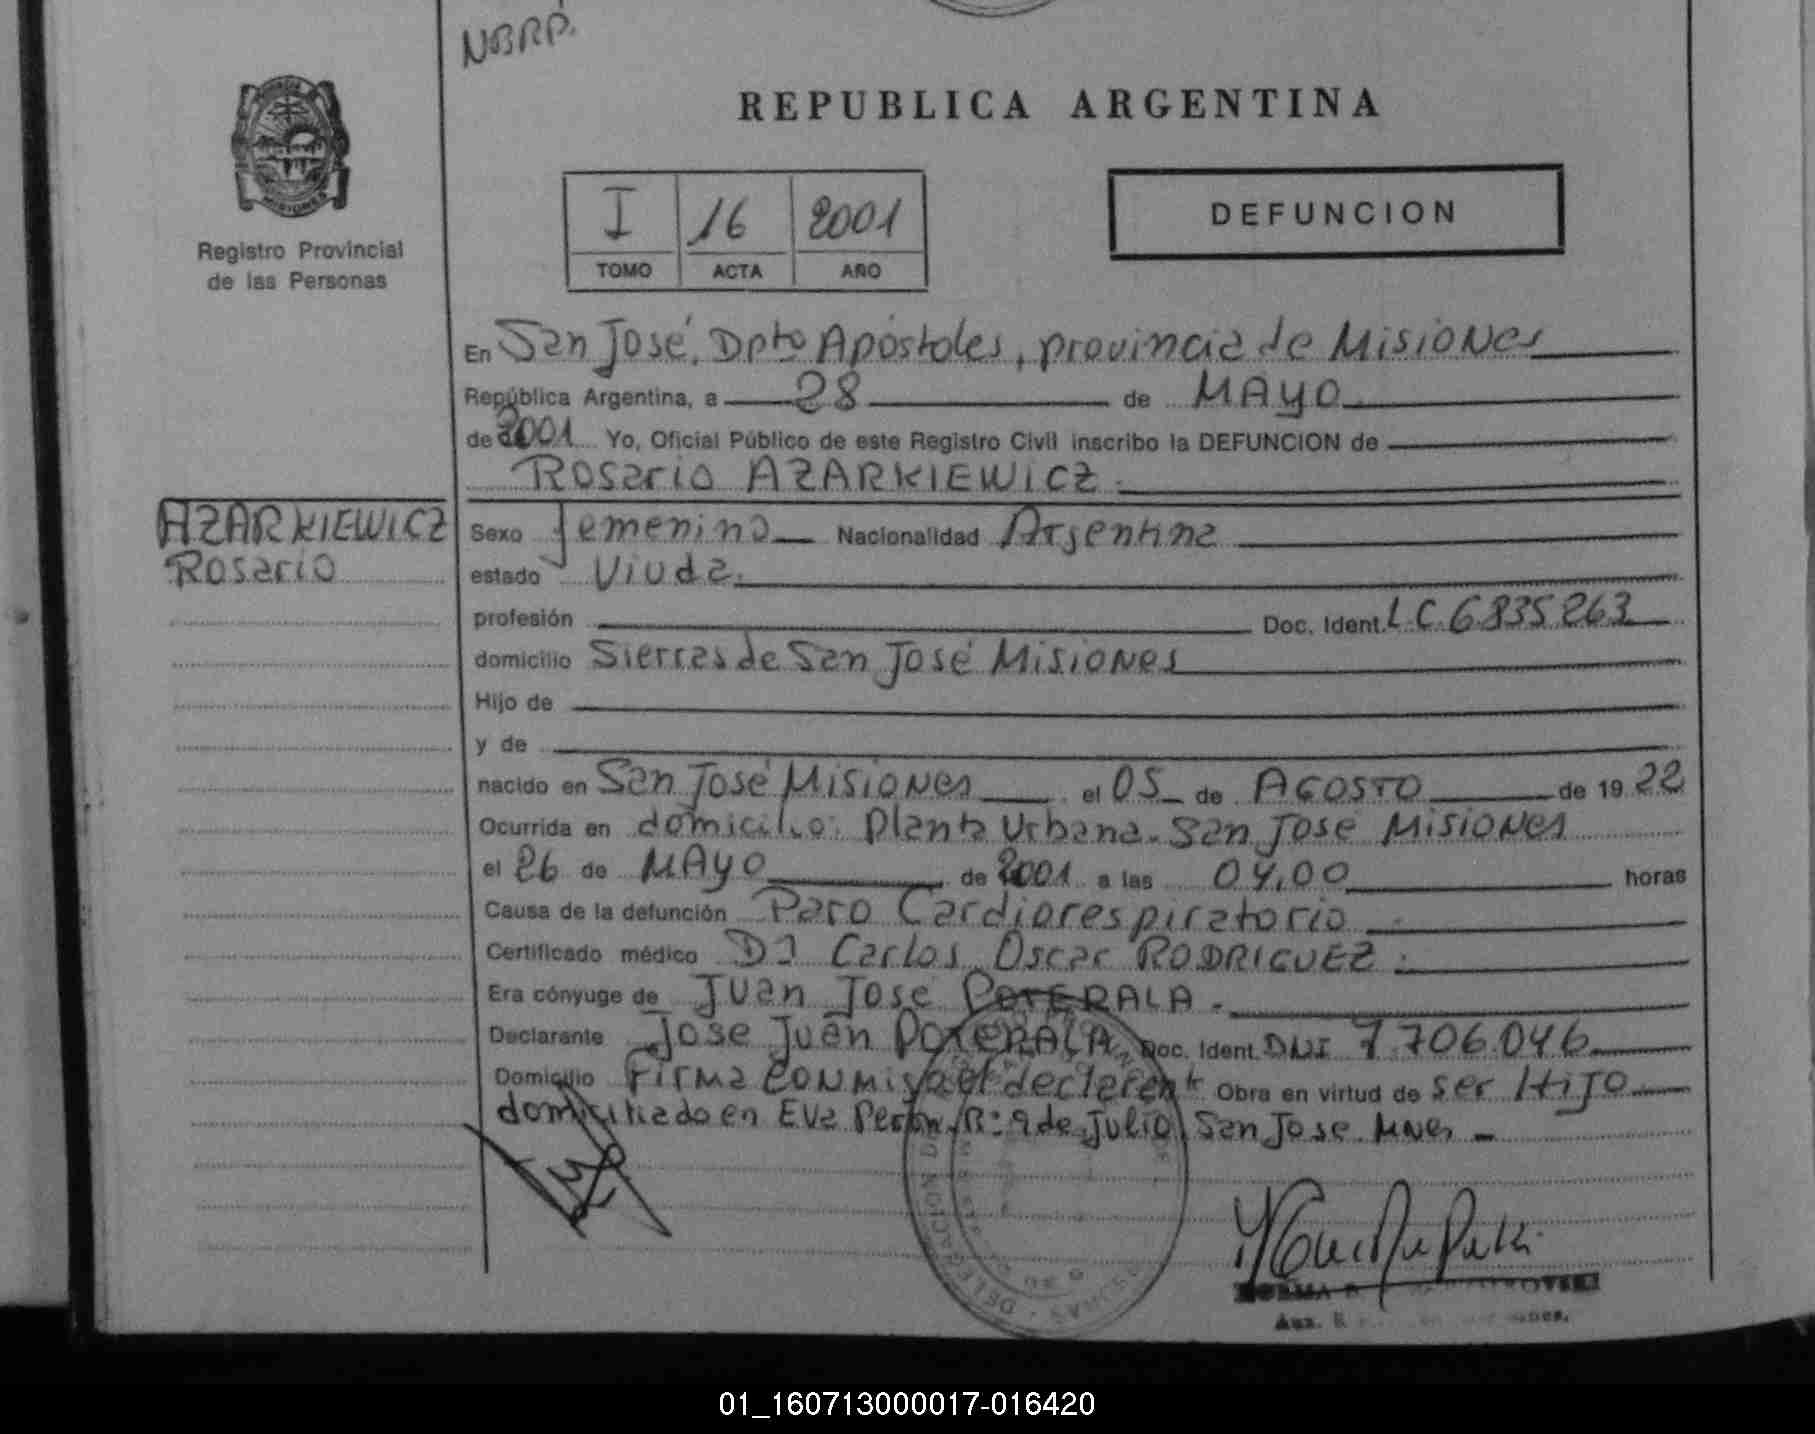 NBRP.
REPUBLICA ARGENTINA
PROVINCIA
MISIONES
Registro Provincial
de las Personas
I 16 2001
TOMO ACTA AÑO
DEFUNCION
En San José, Dpto Apóstoles, provincia de Misiones
República Argentina, a 28 de MAYO
de 2001 Yo, Oficial Público de este Registro Civil inscribo la DEFUNCION de
Rosario AZARKIEWICZ.
AZARKIEWICZ
Rosario
Sexo femenino Nacionalidad Argentina
estado Viuda.
profesión Doc. Ident. LC 6.835.263
domicilio Sierras de San José Misiones
Hijo de
y de
nacido en San José Misiones el 05 de AGOSTO de 1922
Ocurrida en domicilio: Planta Urbana. San José Misiones
el 26 de MAYO de 2001 a las 04,00 horas
Causa de la defunción Paro Cardiorespiratorio
Certificado médico Dr Carlos Oscar RODRIGUEZ.
Era cónyuge de Juan Jose POTERALA.
Declarante Jose Juan POTERALA Doc. Ident. DNI 7.706.046
Domicilio Firma conmigo el declarente Obra en virtud de ser HIJO
domiciliado en Eva Perón, Bº 9 de Julio San Jose Mnes
DELEGACION
NORMA
Aux.
01_160713000017-016420